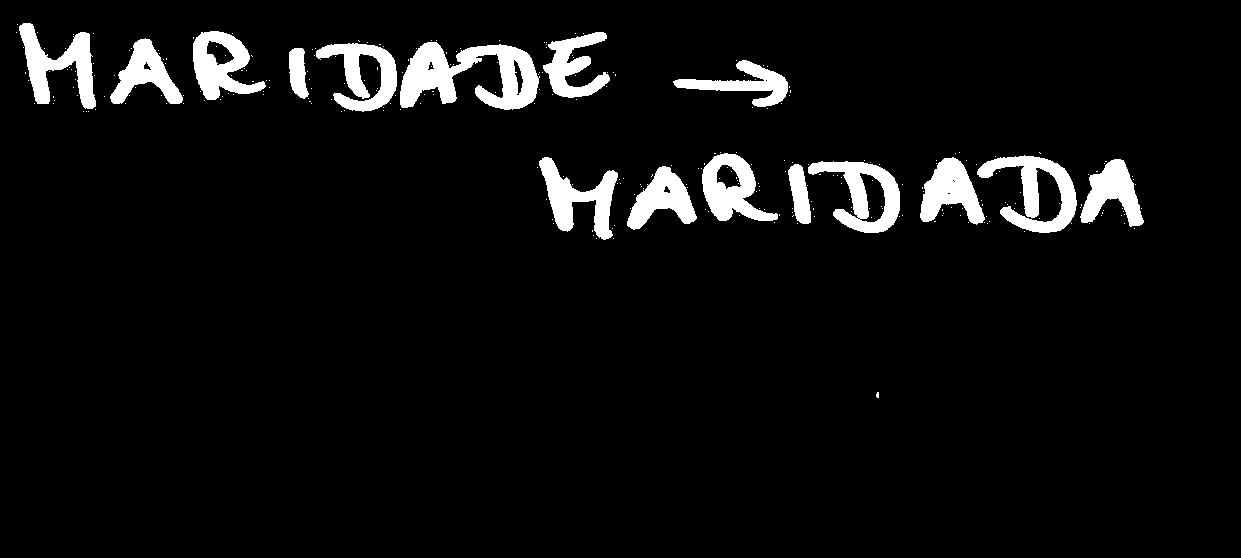 MARIDADE →
MARIDADA